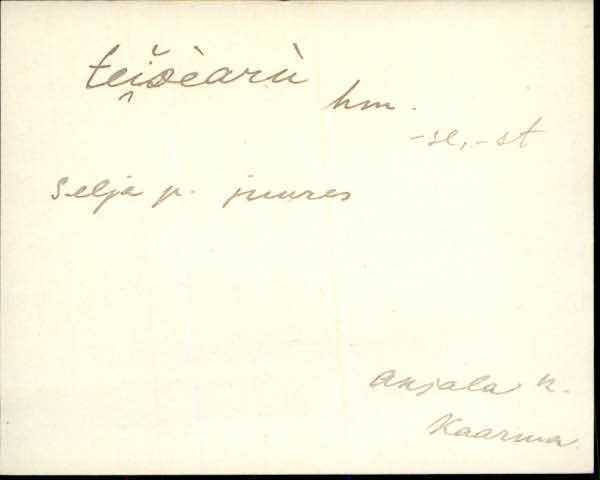 teišèarù
hm.
-se, -st
Selja p. juures
Anjala k.
Kaarma